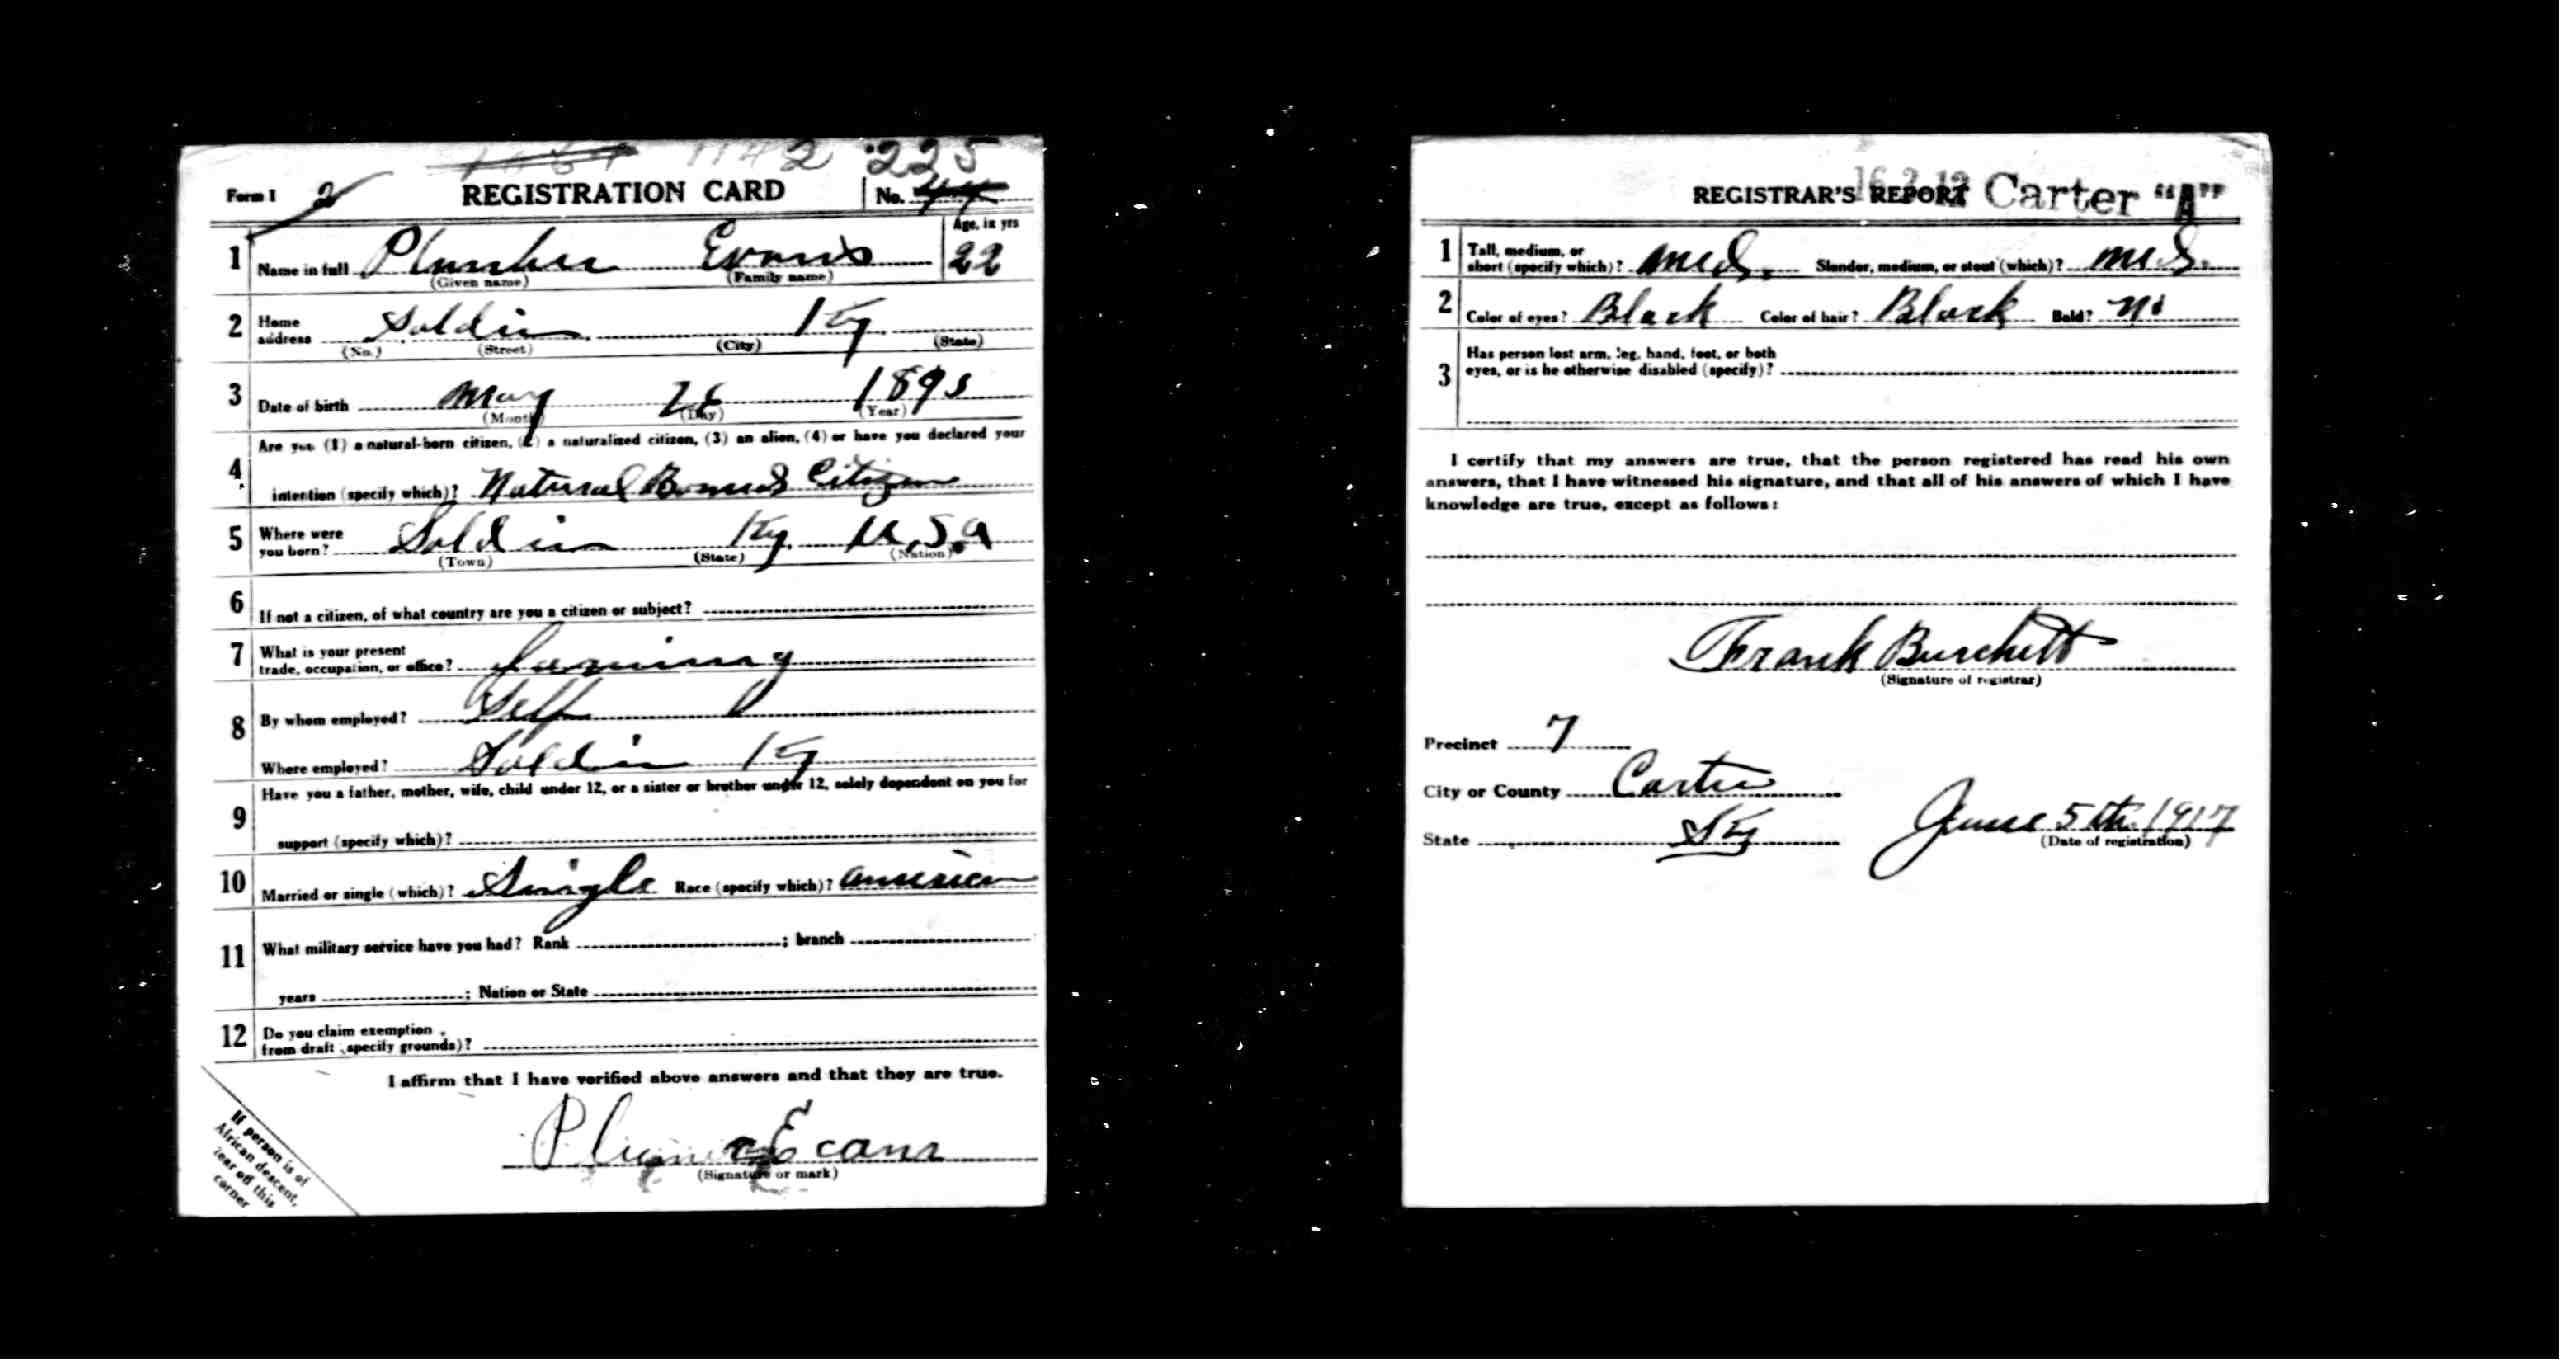 1142 225
Form 1 2 REGISTRATION CARD No. 44
Age, in yrs
1 Name in full Plumber Evans 22
(Given name) (Family name)
2 Home address Soldier Ky
(No.) (Street) (City) (State)
3 Date of birth May 26 1895
(Month) (Day) (Year)
Are you (1) a natural-born citizen, (2) a naturalized citizen, (3) an alien, (4) or have you declared your
4 intention (specify which)? Natural Born Citizen
5 Where were you born? Soldier Ky. U.S.a
(Town) (State) (Nation)
6 If not a citizen, of what country are you a citizen or subject?
7 What is your present
trade, occupation, or office? Farming
8 By whom employed? Self
Where employed? Soldier Ky
Have you a father, mother, wife, child under 12, or a sister or brother under 12, solely dependent on you for
9 support (specify which)?
10 Married or single (which)? Single Race (specify which)? American
11 What military service have you had? Rank ; branch
years ; Nation or State
12 Do you claim exemption
from draft (specify grounds)?
I affirm that I have verified above answers and that they are true.
Evans
(Signature or mark)
If person is of
African descent,
tear off this
corner
REGISTRAR'S REPORT Carter "A"
1 Tall, medium, or
short (specify which)? Med. Slender, medium, or stout (which)? Med.
2 Color of eyes? Black Color of hair? Black Bald? No
Has person lost arm, leg, hand, foot, or both
3 eyes, or is he otherwise disabled (specify)?
I certify that my answers are true, that the person registered has read his own
answers, that I have witnessed his signature, and that all of his answers of which I have
knowledge are true, except as follows:
Frank Burchett
(Signature of registrar)
Precinct 7
City or County Carter
State Ky June 5th. 1917
(Date of registration)